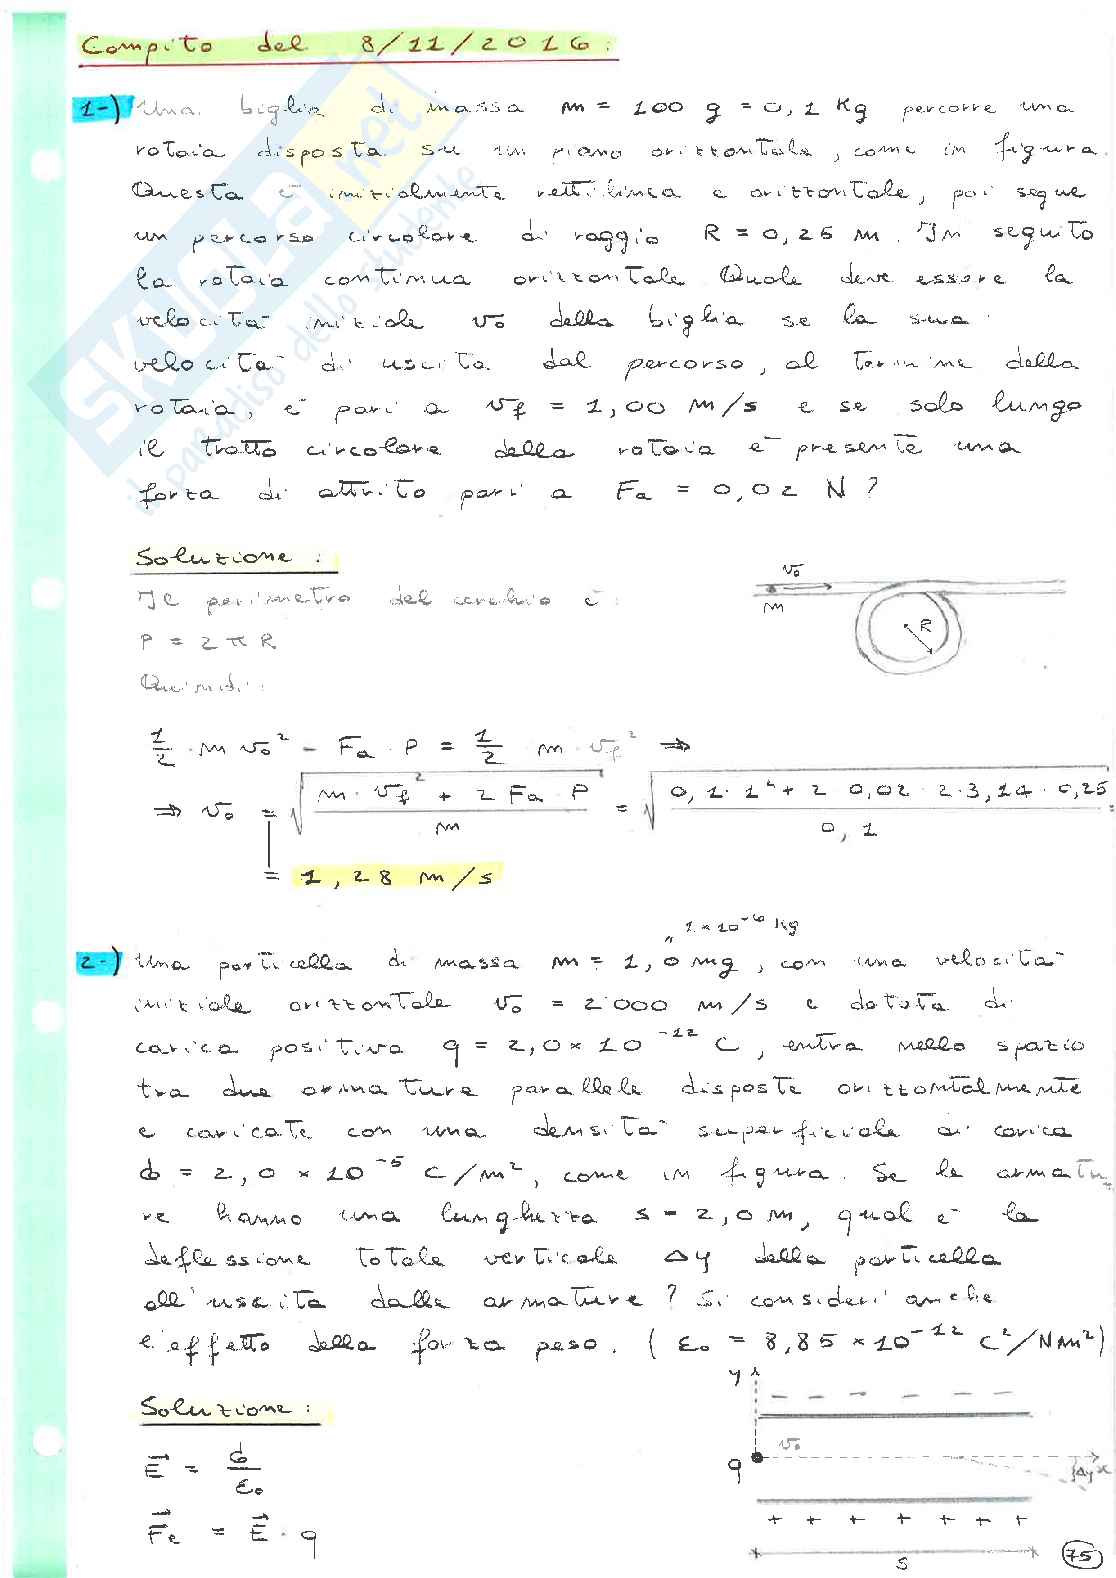 Compito del 8/11/2016:
1-) Una biglia di massa m = 100 g = 0,1 Kg percorre una
rotaia disposta su un piano orizzontale, come in figura.
Questa è inizialmente rettilinea e orizzontale, poi segue
un percorso circolare di raggio R = 0,25 m. In seguito
la rotaia continua orizzontale. Quale deve essere la
velocità iniziale v₀ della biglia se la sua
velocità di uscita dal percorso, al termine della
rotaia, è pari a vf = 1,00 m/s e se solo lungo
il tratto circolare della rotaia è presente una
forza di attrito pari a Fa = 0,02 N?
Soluzione:
Il perimetro del cerchio è:
P = 2πR
Quindi:
v₀
m
R
1/2 · m v₀² - Fa · P = 1/2 m · vf² ⇒
⇒ v₀ = √((m · vf² + 2 Fa · P)/m) = √((0,1 · 1² + 2 · 0,02 · 2 · 3,14 · 0,25)/0,1) =
= 1,28 m/s
1 × 10⁻⁶ Kg
2-) Una particella di massa m = 1,0 mg, con una velocità
iniziale orizzontale v₀ = 2000 m/s e dotata di
carica positiva q = 2,0 × 10⁻¹² C, entra nello spazio
tra due armature parallele disposte orizzontalmente
e caricate con una densità superficiale di carica
σ = 2,0 × 10⁻⁵ C/m², come in figura. Se le armatu-
re hanno una lunghezza s = 2,0 m, qual è la
deflessione totale verticale Δy della particella
all'uscita dalle armature? Si consideri anche
l'effetto della forza peso. (ε₀ = 8,85 × 10⁻¹² C²/Nm²)
Soluzione:
E⃗ = σ/ε₀
F⃗e = E⃗ · q
y
- - - - - -
v₀
q
Δy x
+ + + + + + +
s
75
SKUOLA.net
il paradiso dello studente